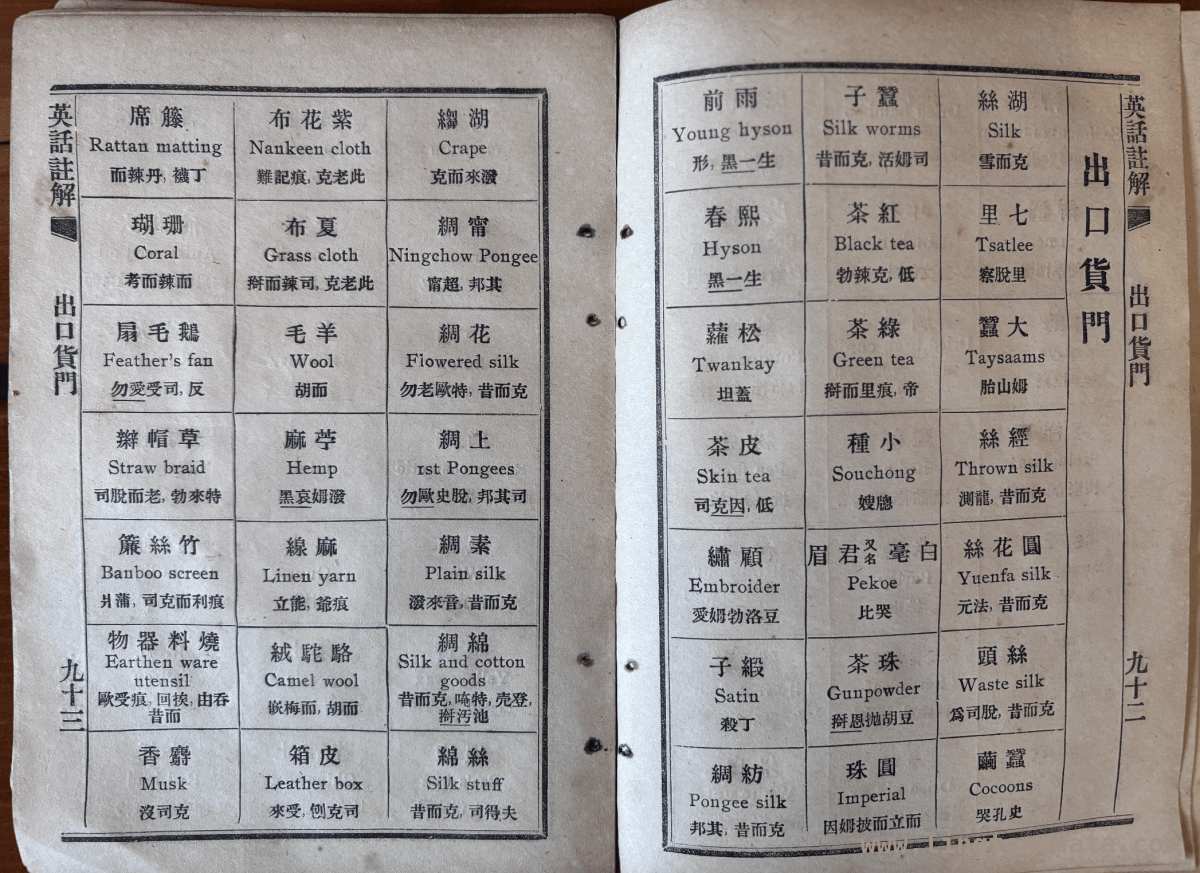 英話註解
出口貨門
九十二
出口貨門
湖絲
Silk
雪而克
七里
Tsatlee
察脫里
大蠶
Taysaams
胎山姆
經絲
Thrown silk
測龍, 昔而克
圓花絲
Yuenfa silk
元法, 昔而克
絲頭
Waste silk
爲司脫, 昔而克
蠶繭
Cocoons
哭孔史
蠶子
Silk worms
昔而克, 活姆司
紅茶
Black tea
勃辣克, 低
綠茶
Green tea
搿而里痕, 帝
小種
Souchong
嫂牕
白毫又名君眉
Pekoe
比哭
珠茶
Gunpowder
搿恩抛胡豆
圓珠
Imperial
因姆披而立而
雨前
Young hyson
形, 黑一生
熙春
Hyson
黑一生
松蘿
Twankay
坦蓋
皮茶
Skin tea
司克因, 低
顧繡
Embroider
愛姆勃洛豆
緞子
Satin
殺丁
紡綢
Pongee silk
邦其, 昔而克
湖縐
Crape
克而來潑
甯綢
Ningchow Pongee
甯超, 邦其
花綢
Fiowered silk
勿老歐特, 昔而克
上綢
1st Pongees
勿歐史脫, 邦其司
素綢
Plain silk
潑來音, 昔而克
綿綢
Silk and cotton
goods
昔而克, 唵特, 売登,
搿汚池
絲綿
Silk stuff
昔而克, 司得夫
紫花布
Nankeen cloth
難記痕, 克老此
夏布
Grass cloth
搿而辣司, 克老此
羊毛
Wool
胡而
苧麻
Hemp
黑哀姆潑
麻線
Linen yarn
立能, 爺痕
駱駝絨
Camel wool
嵌梅而, 胡而
皮箱
Leather box
來受, 刨克司
籐席
Rattan matting
而辣丹, 襪丁
珊瑚
Coral
考而辣而
鵝毛扇
Feather's fan
勿愛受司, 反
草帽辮
Straw braid
司脫而老, 勃來特
竹絲簾
Banboo screen
爿蒲, 司克而利痕
燒料器物
Earthen ware
utensil
歐受痕, 回挨, 由吞
昔而
麝香
Musk
沒司克
英話註解
出口貨門
九十三